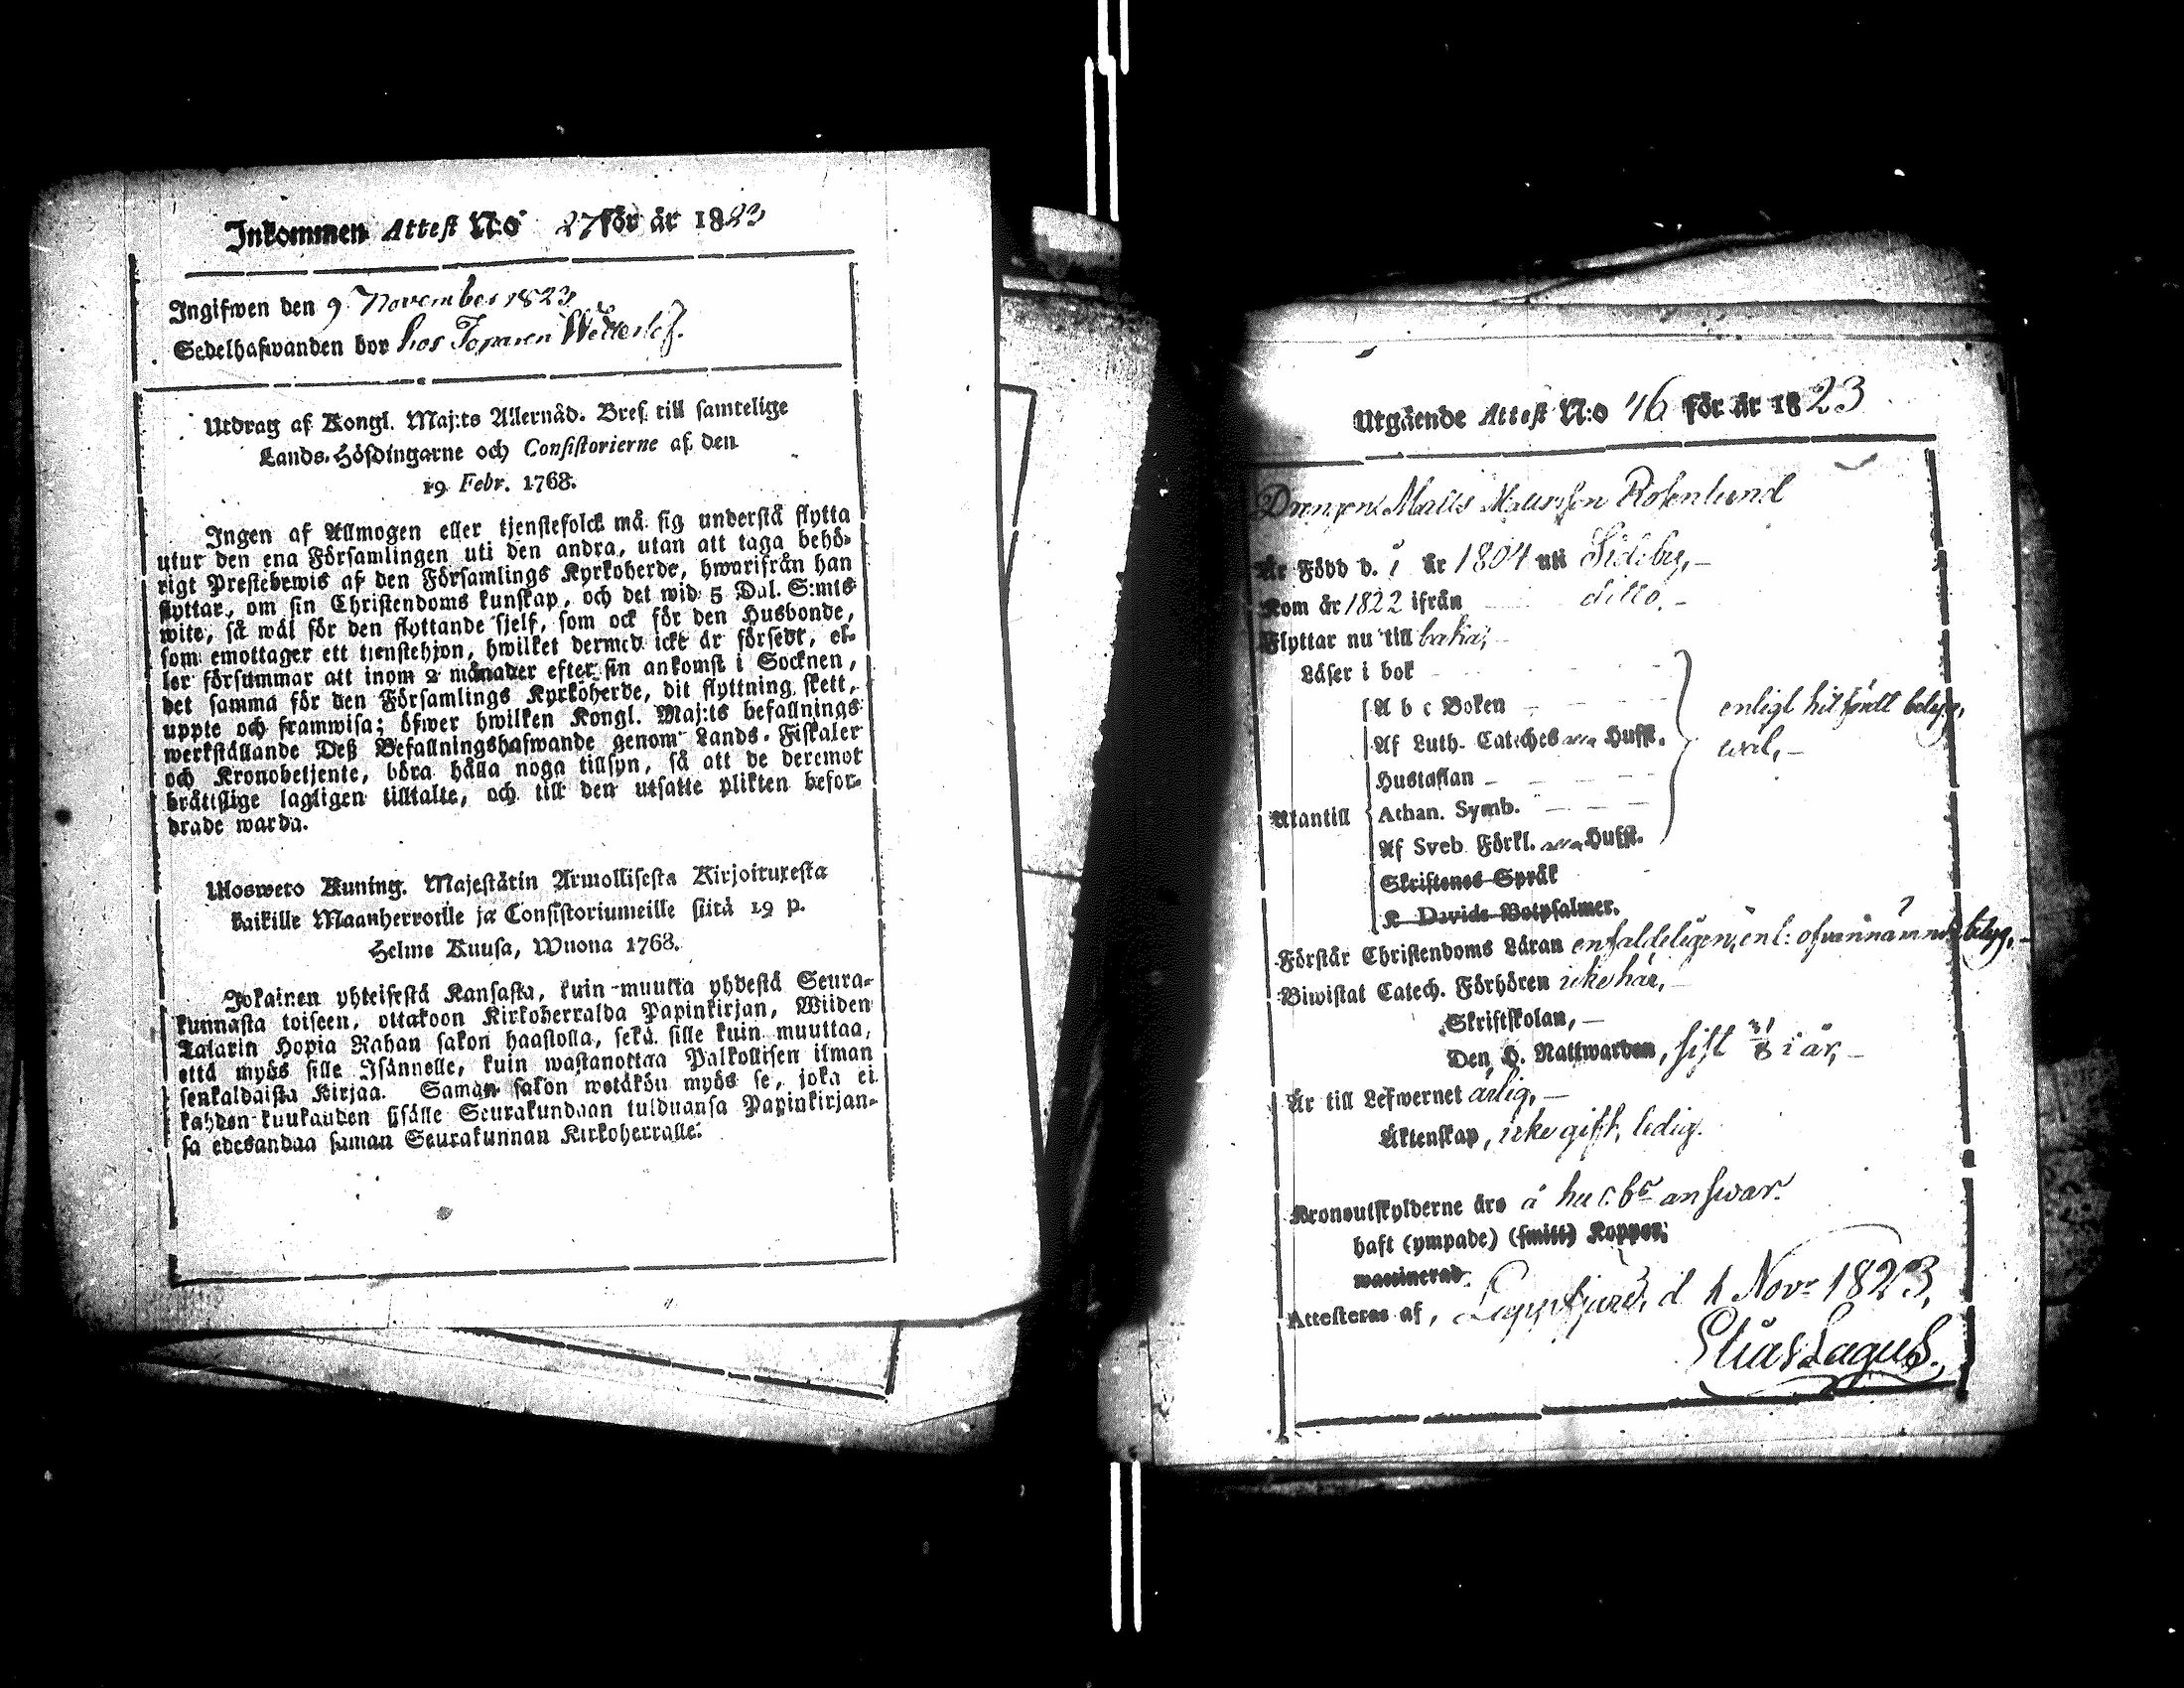 Inkommen Attest N:o 27 för år 1823
Ingifwen den 9 November 1823
Sedelhafwanden bor hos
Utdrag af Kongl. Maj:ts Allernåd. Bref till samtelige
Lands-Höfdingarne och Consistorierne af den
19 Febr. 1768.
Ingen af Allmogen eller tjenstefolck må sig understå flytta
utur den ena Församlingen uti den andra, utan att taga behö-
rigt Prestebewis af den Församlings Kyrkoherde, hwarifrån han
flyttar, om sin Christendoms kunskap, och det wid 5 Dal. S:mts
wite, så wäl för den flyttande sjelf, som ock för den Husbonde,
som emottager ett tjenstehjon, hwilket dermed icke är försedt, el-
ler försummar att inom 2 månader efter sin ankomst i Socknen,
det samma för den Församlings Kyrkoherde, dit flyttning skett,
uppte och framwisa; öfwer hwilken Kongl. Maj:ts befallnings
werkställande Deß Befallningshafwande genom Lands-Fiskaler
och Kronobetjente, böra hålla noga tillsyn, så att de deremot
bråttslige lagligen tilltalte, och till den utsatte plikten befor-
drade warda.
Ulosweto Kuning. Majestätin Armollisesta Kirjoituxesta
kaikille Maanherroille ja Consistoriumeille siitä 19 p.
Helme Kuusa, Wuona 1768.
Jokainen yhteisestä Kansasta, kuin muutta yhdestä Seura-
kunnasta toiseen, ottakoon Kirkoherralda Papinkirjan, Wiiden
Talarin Hopia Rahan sakon haastolla, sekä sille kuin muuttaa,
että myös sille Isännelle, kuin wastanottaa Palkollisen ilman
senkaldaista Kirjaa. Saman sakon wetäkön myös se, joka ei
kahden kuukauden sisälle Seurakundaan tulduansa Papinkirjan-
sa edesandaa saman Seurakunnan Kirkoherralle.
Utgående Attest N:o 46 för år 1823
Drengen Matts Mattsson Rosenlund
Är Född d. år 1804 uti Sideby,
Kom år 1822 ifrån ditto.
Flyttar nu till baka,
Läser i bok
A b c Boken
enligt hit fördt betyg,
Af Luth. Cateches Hufst.
wäl,
Hustaflan
Utantill Athan. Symb.
Af Sveb. Förkl. Hufst.
Skriftenes Språk
K. Davids Botpsalmer.
Förstår Christendoms Läran enfaldeligen, enl: ofvannämnde betyg.
Biwistat Catech. Förhören icke här,
Skriftskolan,
Den H. Nattwarden, sist 31/8 i år,
Är till Lefwernet ärlig,
Äktenskap, icke gift, ledig.
Kronoutskylderne äro å answar.
haft (ympade) (smitt) Koppor.
waccinerad.
Attesteras af, Lappfjärd, d 1 Nov: 1823,
Elias Lagus.